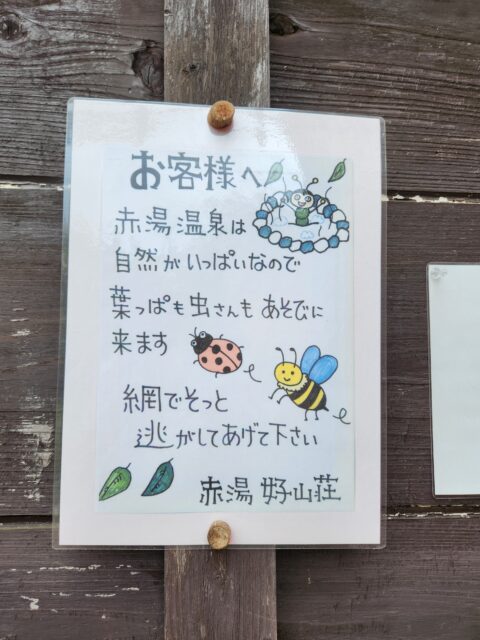 お客様へ
赤湯温泉は
自然がいっぱいなので
葉っぱも虫さんもあそびに
来ます
網でそっと
逃がしてあげて下さい
赤湯 好山荘